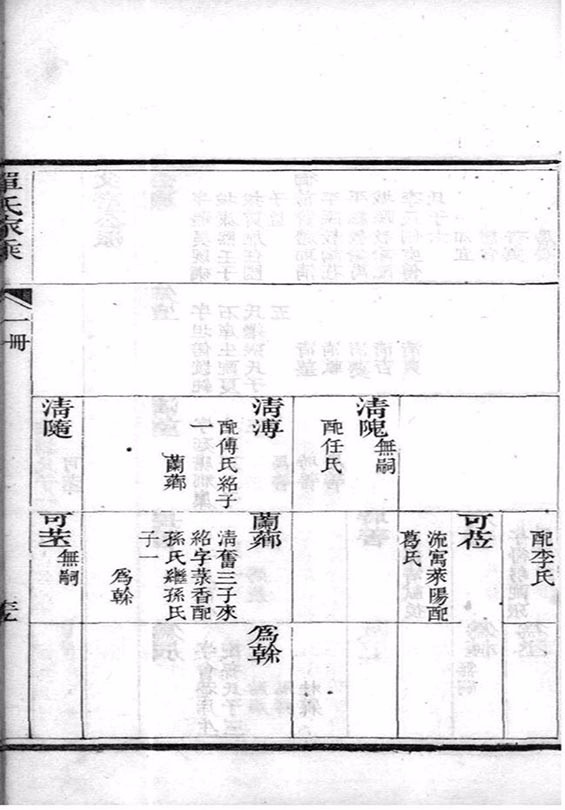 單氏家乘
一冊
配李氏
可莅
流寓萊陽配
葛氏
清隗
無嗣
配任氏
清溥
配傅氏紹子
一
蘭薌
蘭薌
清奮三子來
紹字棻香配
孫氏繼孫氏
子一
爲榦
爲榦
清隨
可荃
無嗣